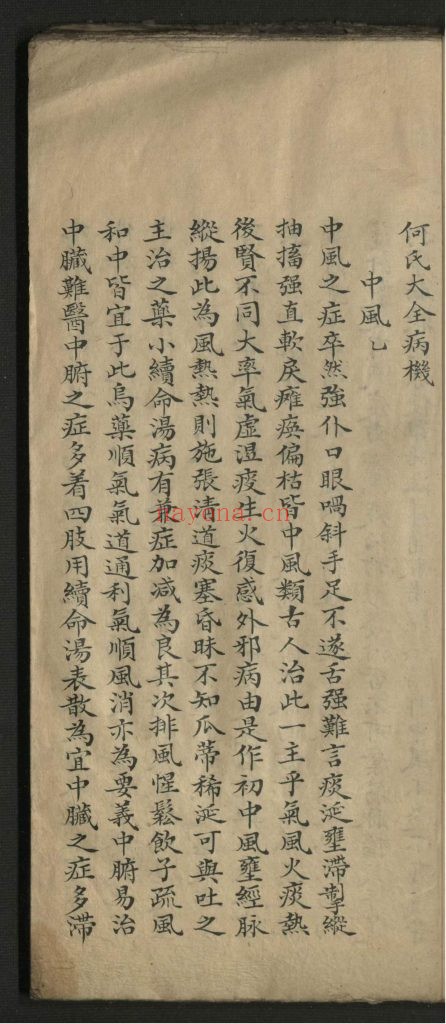 何氏大全病機
中風乙
中風之症卒然強仆口眼喎斜手足不遂舌强難言痰涎壅滯掣縱
抽搐强直軟戾癱瘓偏枯皆中風類古人治此一主乎氣風火痰熱
後賢不同大率氣虛湿痰生火復感外邪病由是作初中風壅經脉
縱揚此為風熱熱則施張清道痰塞昏昧不知瓜蒂稀涎可與吐之
主治之藥小續命湯病有兼症加减為良其次排風惺鬆飲子疏風
和中皆宜于此烏藥順氣氣道通利氣順風消亦為要義中腑易治
中臟難醫中腑之症多着四肢用續命湯表散為宜中臟之症多滯
nayona.cn